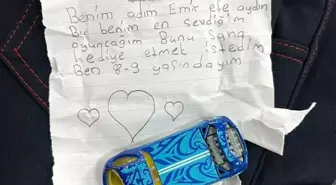 Benim adım Emir efe aydın
Bu benim en sevdiğim
oyuncağım Bunu sana
hediye etmek istedim
Ben 8-9 yaşındayım